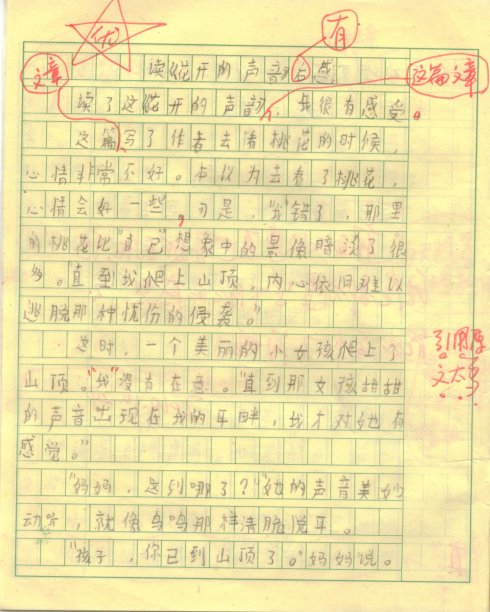 优
有
读《花开的声音》后感
文章
这篇文章
读了这《花开的声音》,我很有感受。
这篇写了作者去看桃花的时候,
心情非常不好。本以为去看了桃花,
心情会好一些,可是,"我"错了,那里
的桃花比"自己"想象中的景像暗淡了很
多。"直到我爬上山顶,内心依旧难以
逃脱那种忧伤的侵袭。"
这时,一个美丽的小女孩爬上了
山顶。"我"没有在意。"直到那女孩甜甜
的声音出现在我的耳畔,我才对她有
感觉。"
引用原
文太多
"妈妈,这到哪了?"她的声音美妙
动听,就像鸟鸣那样清脆悦耳。
"孩子,你已到山顶了。"妈妈说。